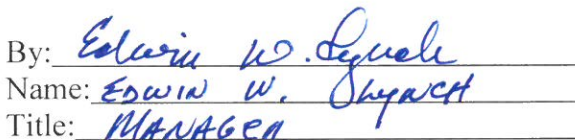 By: Edwin W. Lynch
Name: EDWIN W. LYNCH
Title: MANAGER